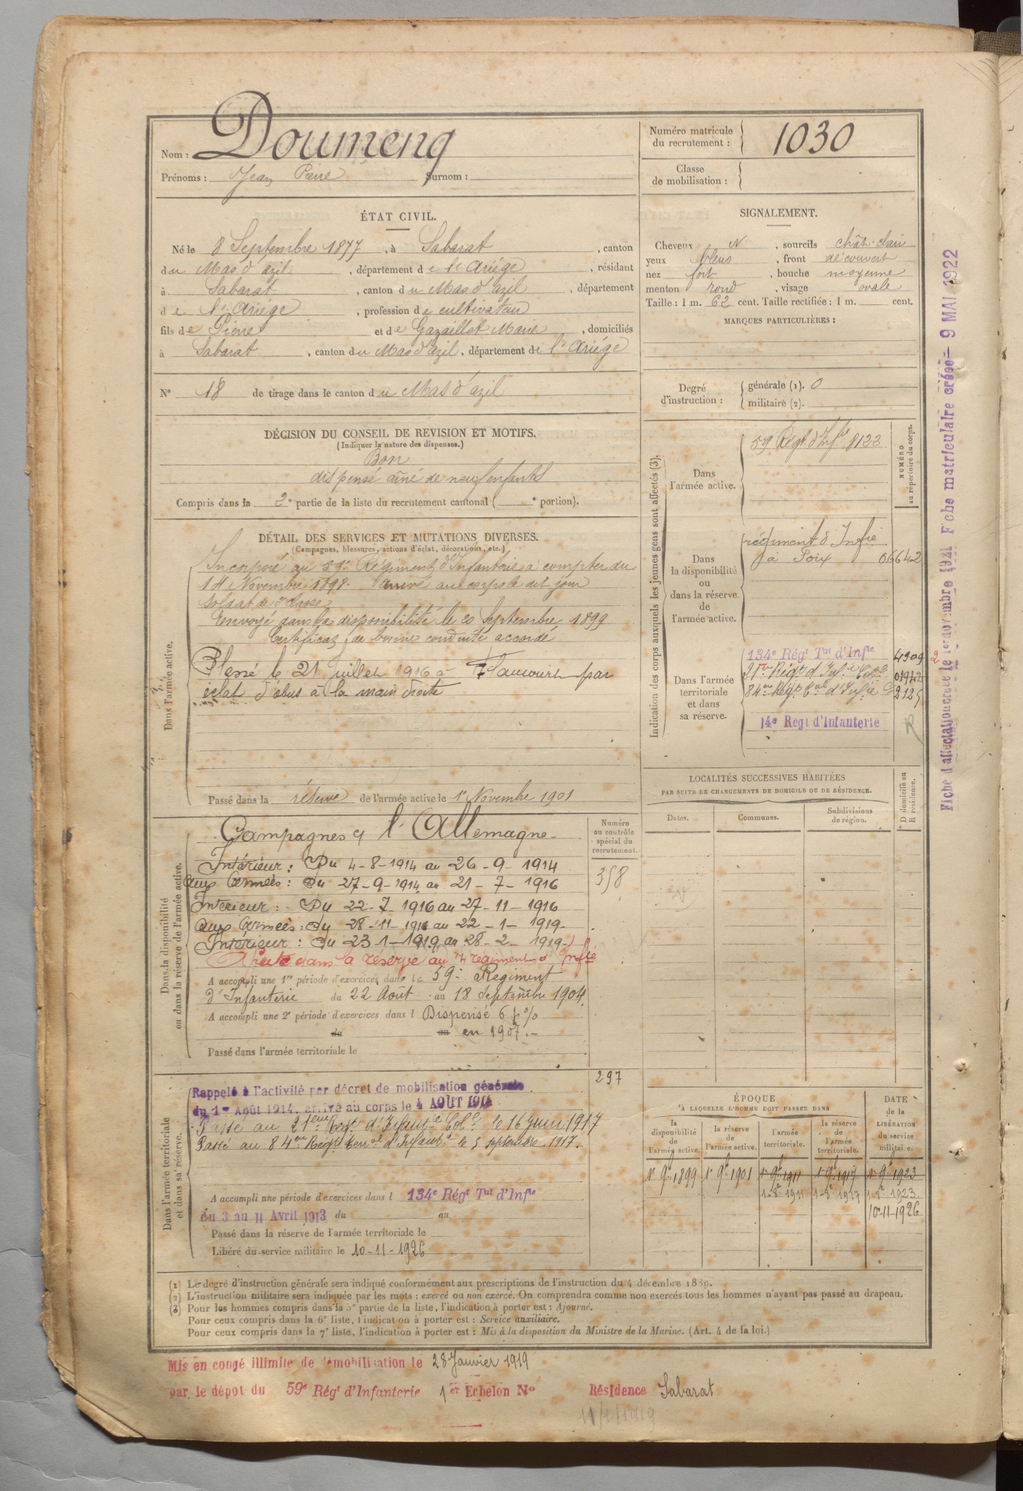 Nom : Doumenq
Prénoms : Jean Pierre Surnom :
Numéro matricule du recrutement : 1030
Classe de mobilisation :
ÉTAT CIVIL.
Né le 8 Septembre 1877, à Sabarat, canton
du Mas d'azil, département de l'Ariège, résidant
à Sabarat, canton du Mas d'azil, département
de l'Ariège, profession de cultivateur
fils de Pierre et de Gazaillet Marie, domiciliés
à Sabarat, canton du Mas d'azil, département de l'Ariège
N° 18 de tirage dans le canton du Mas d'azil
SIGNALEMENT.
Cheveux N, sourcils chât-clair
yeux bleus, front découvert
nez fort, bouche moyenne
menton rond, visage ovale
Taille : 1 m. 62 cent. Taille rectifiée : 1 m. cent.
MARQUES PARTICULIÈRES :
Degré d'instruction : générale (1). 0
militaire (2).
DÉCISION DU CONSEIL DE REVISION ET MOTIFS.
(Indiquer la nature des dispenses.)
Bon
dispensé aîné de neuf enfants
Compris dans la 2e partie de la liste du recrutement cantonal ( e portion).
DÉTAIL DES SERVICES ET MUTATIONS DIVERSES.
(Campagnes, blessures, actions d'éclat, décorations, etc.)
Dans l'armée active.
Incorporé au 59e Régiment d'Infanterie à compter du
14 Novembre 1898. Arrivé au corps le dit jour
Soldat de 2e classe
Envoyé dans la disponibilité le 20 Septembre 1899
Certificat de bonne conduite accordé
Blessé le 21 juillet 1916 à Flaucourt par
éclat d'obus à la main droite
Passé dans la réserve de l'armée active le 1er Novembre 1901
Dans la disponibilité ou dans la réserve de l'armée active.
Campagnes c/ l'Allemagne
Intérieur : Du 4-8-1914 au 26-9-1914
aux Armées : Du 27-9-1914 au 21-7-1916
Intérieur : Du 22-7-1916 au 27-11-1916
aux Armées : Du 28-11-1916 au 22-1-1919
Intérieur : Du 23-1-1919 au 28-2-1919
dans la réserve au régiment d'Infie
A accompli une 1re période d'exercices dans le 59e Régiment
d'Infanterie du 22 Août au 18 Septembre 1904.
A accompli une 2e période d'exercices dans l Dispensé 6 %
du au en 1907.-
Passé dans l'armée territoriale le
Numéro au contrôle spécial du recrutement.
358
297
Dans l'armée territoriale et dans sa réserve.
Rappelé à l'activité par décret de mobilisation générale
du 1er Août 1914, arrivé au corps le 4 AOUT 1914
Passé au 21ème Regt d'Infantie Colle le 16 juin 1917
Passé au 84e Régt Terral d'Infantie le 5 septembre 1917.
A accompli une période d'exercices dans l 134e Régt Tal d'Infie
du 3 au 11 Avril 1913 du au
Passé dans la réserve de l'armée territoriale le
Libéré du service militaire le 10-11-1926
Indication des corps auxquels les jeunes gens sont affectés (3).
NUMÉRO au répertoire du corps.
Dans l'armée active. 59 Régt d'Infie 8133
Dans la disponibilité ou dans la réserve de l'armée active.
régiment d'Infie
à Foix 06642
Dans l'armée territoriale et dans sa réserve.
134e Régt Tal d'Infie 4309
21ème Régt d'Infie Colle 01942
84ème Régt Tal d'Infie 2125
14e Régt d'Infanterie
R
LOCALITÉS SUCCESSIVES HABITÉES
PAR SUITE DE CHANGEMENTS DE DOMICILE OU DE RÉSIDENCE.
Dates. Communes. Subdivisions de région. D domicile ou R résidence.
ÉPOQUE
À LAQUELLE L'HOMME DOIT PASSER DANS
la disponibilité de l'armée active. la réserve de l'armée active. l'armée territoriale. la réserve de l'armée territoriale.
DATE de la LIBÉRATION du service militaire.
1er 9bre 1899 1er 9bre 1901 1er 9bre 1911 1er 9bre 1917 1er 9bre 1923
10-11-1926
(1) Le degré d'instruction générale sera indiqué conformément aux prescriptions de l'instruction du 4 décembre 1889.
(2) L'instruction militaire sera indiquée par les mots : exercé ou non exercé. On comprendra comme non exercés tous les hommes n'ayant pas passé au drapeau.
(3) Pour les hommes compris dans la 5e partie de la liste, l'indication à porter est : Ajourné.
Pour ceux compris dans la 6e liste, l'indication à porter est : Service auxiliaire.
Pour ceux compris dans la 7e liste, l'indication à porter est : Mis à la disposition du Ministre de la Marine. (Art. 4 de la loi.)
Mis en congé illimité de démobilisation le 28 Janvier 1919
par le dépôt du 59e Régt d'Infanterie 1er Echelon N° Résidence Sabarat
Fiche d'affectation créée le 1er novembre 1921 Fiche matriculaire créée - 9 MAI 1922